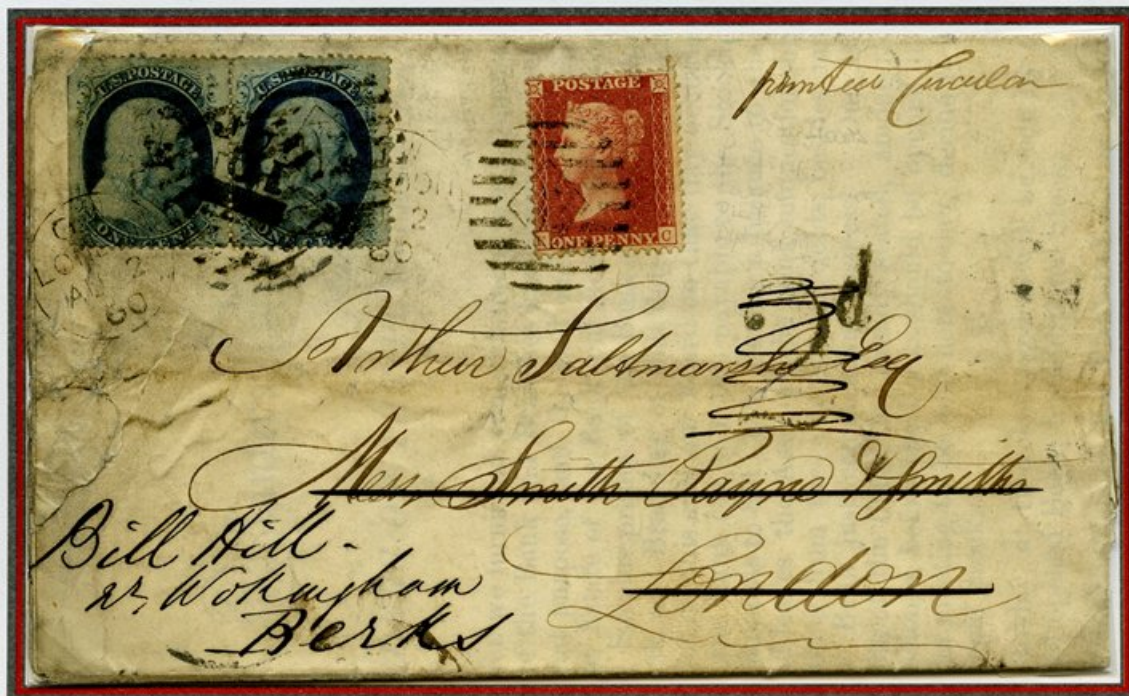 U.S. POSTAGE U.S. POSTAGE
ONE CENT. ONE CENT.
POSTAGE
ONE PENNY C
printed Circular
LO
2
60
2
60
d
Arthur Saltmarshe Esq
Mess Smith Payne & Smiths
London
Bill Hill -
nr, Wokingham
Berks